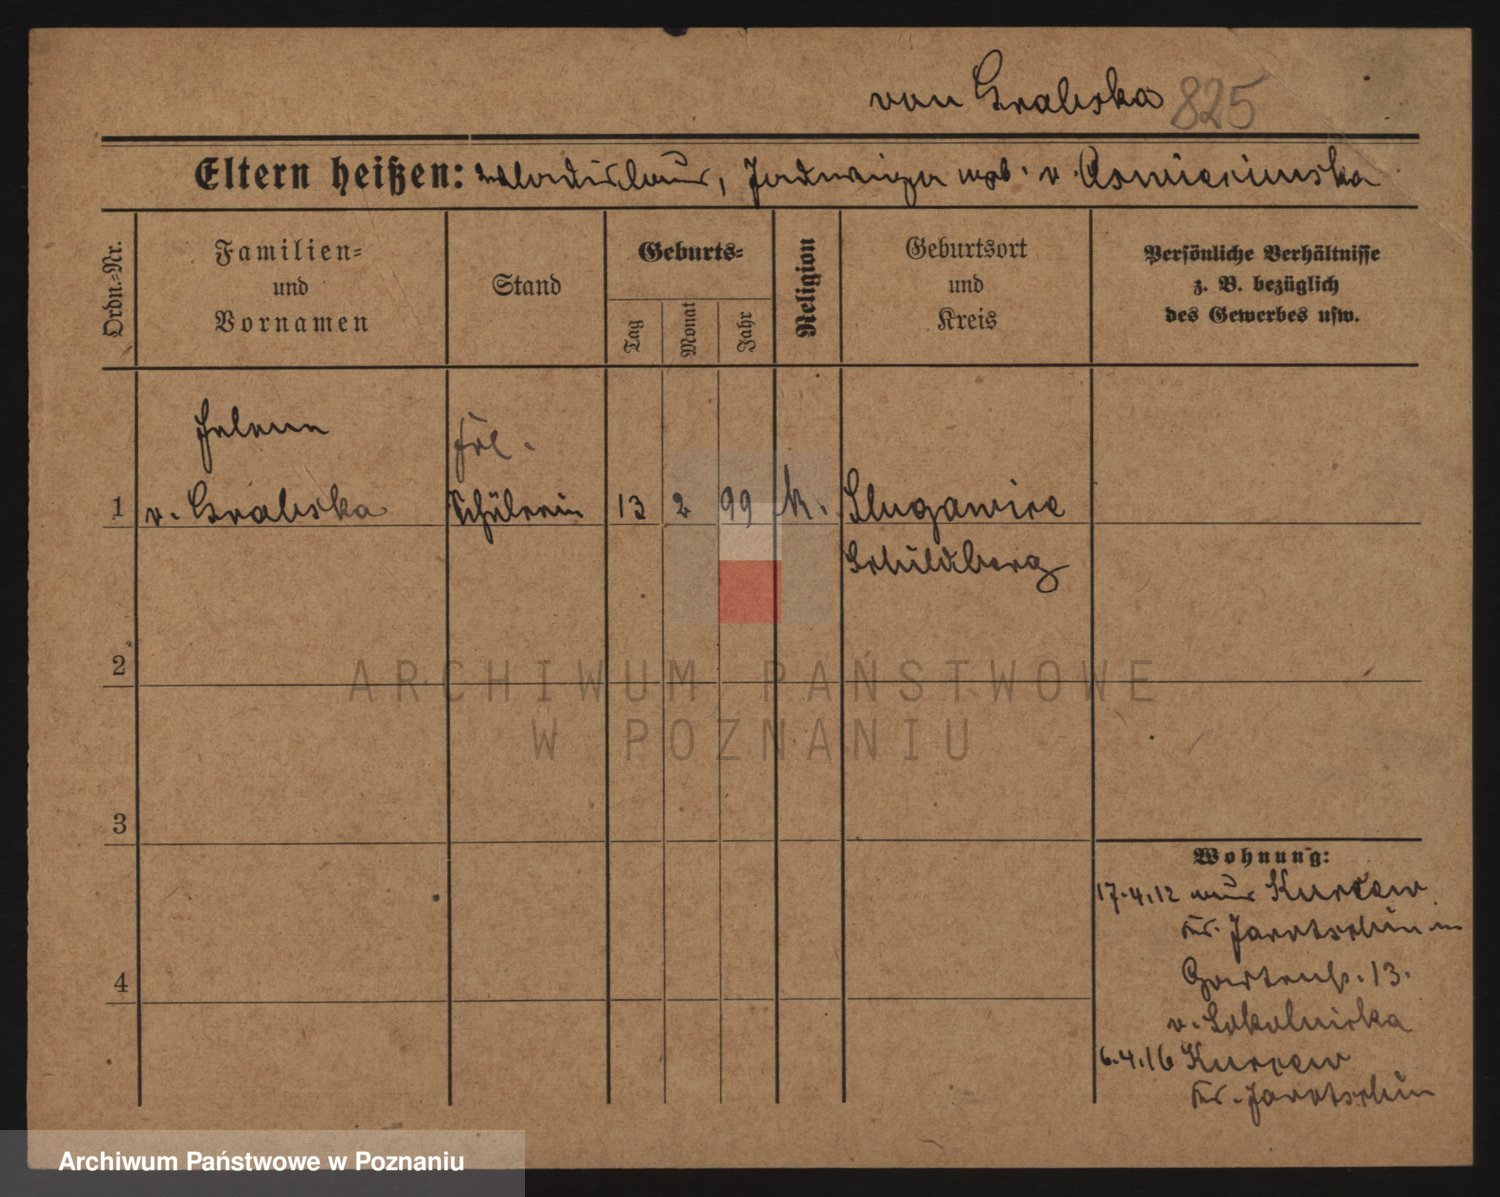 von Grabska 825
Eltern heißen: Wladislaus, Jadwiga geb. v. Oswiecimska
Ordn.-Nr.
Familien-
und
Vornamen
Stand
Geburts-
Tag
Monat
Jahr
Religion
Geburtsort
und
Kreis
Persönliche Verhältnisse
z. B. bezüglich
des Gewerbes usw.
Helene
Frl.
1 v. Grabska Schülerin 13 2 99 k. Slugawice
Schildberg
2
ARCHIWUM PAŃSTWOWE
W POZNANIU
3
Wohnung:
17.4.12 aus Kurcew
Kr. Jarotschin in
Gartenstr. 13.
v. Sokolnicka
4
6.4.16 Kurcew
Kr. Jarotschin
Archiwum Państwowe w Poznaniu